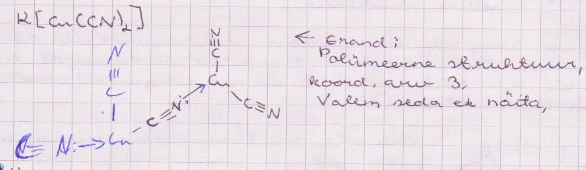 K[Cu(CN)₂]
← Erand:
Polümeerne struktuur,
koord. arv 3,
Valem seda ei näita,
N
≡
C
|
Cu
C≡N:→
C≡N
N
|||
C
|
Cu
C≡N:→